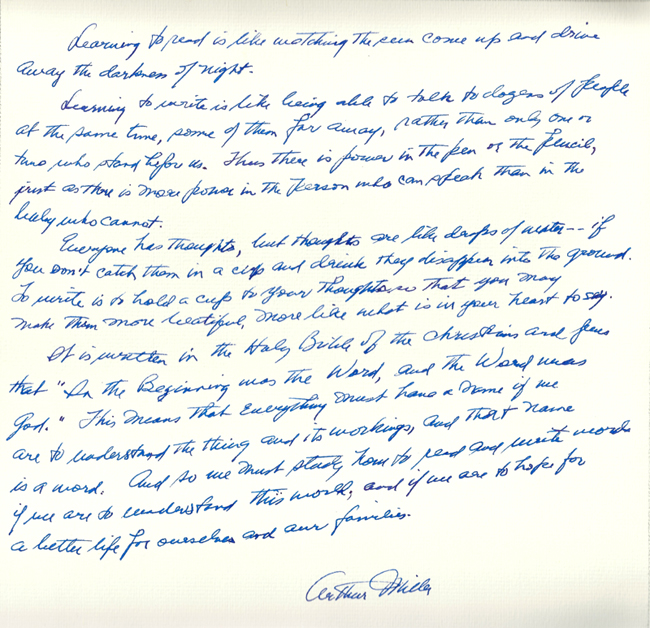 Learning to read is like watching the sun come up and drive
away the darkness of night.
Learning to write is like being able to talk to dozens of people
at the same time, some of them far away, rather than only one or
two who stand before us. Thus there is power in the pen or the pencil,
just as there is more power in the person who can speak than in the
baby who cannot.
Everyone has thoughts, but thoughts are like drops of water -- if
you don't catch them in a cup and drink they disappear into the ground.
To write is to hold a cup to your thoughts so that you may
make them more beatiful, more like what is in your heart to say.
It is written in the Holy Bible of the Christians and Jews
that "In the Beginning was the Word, and the Word was
God." This means that everything must have a name if we
are to understand the thing and its workings, and that name
is a word. And so we must study how to read and write words
if we are to understand this world, and if we are to hope for
a better life for ourselves and our families.
Arthur Miller